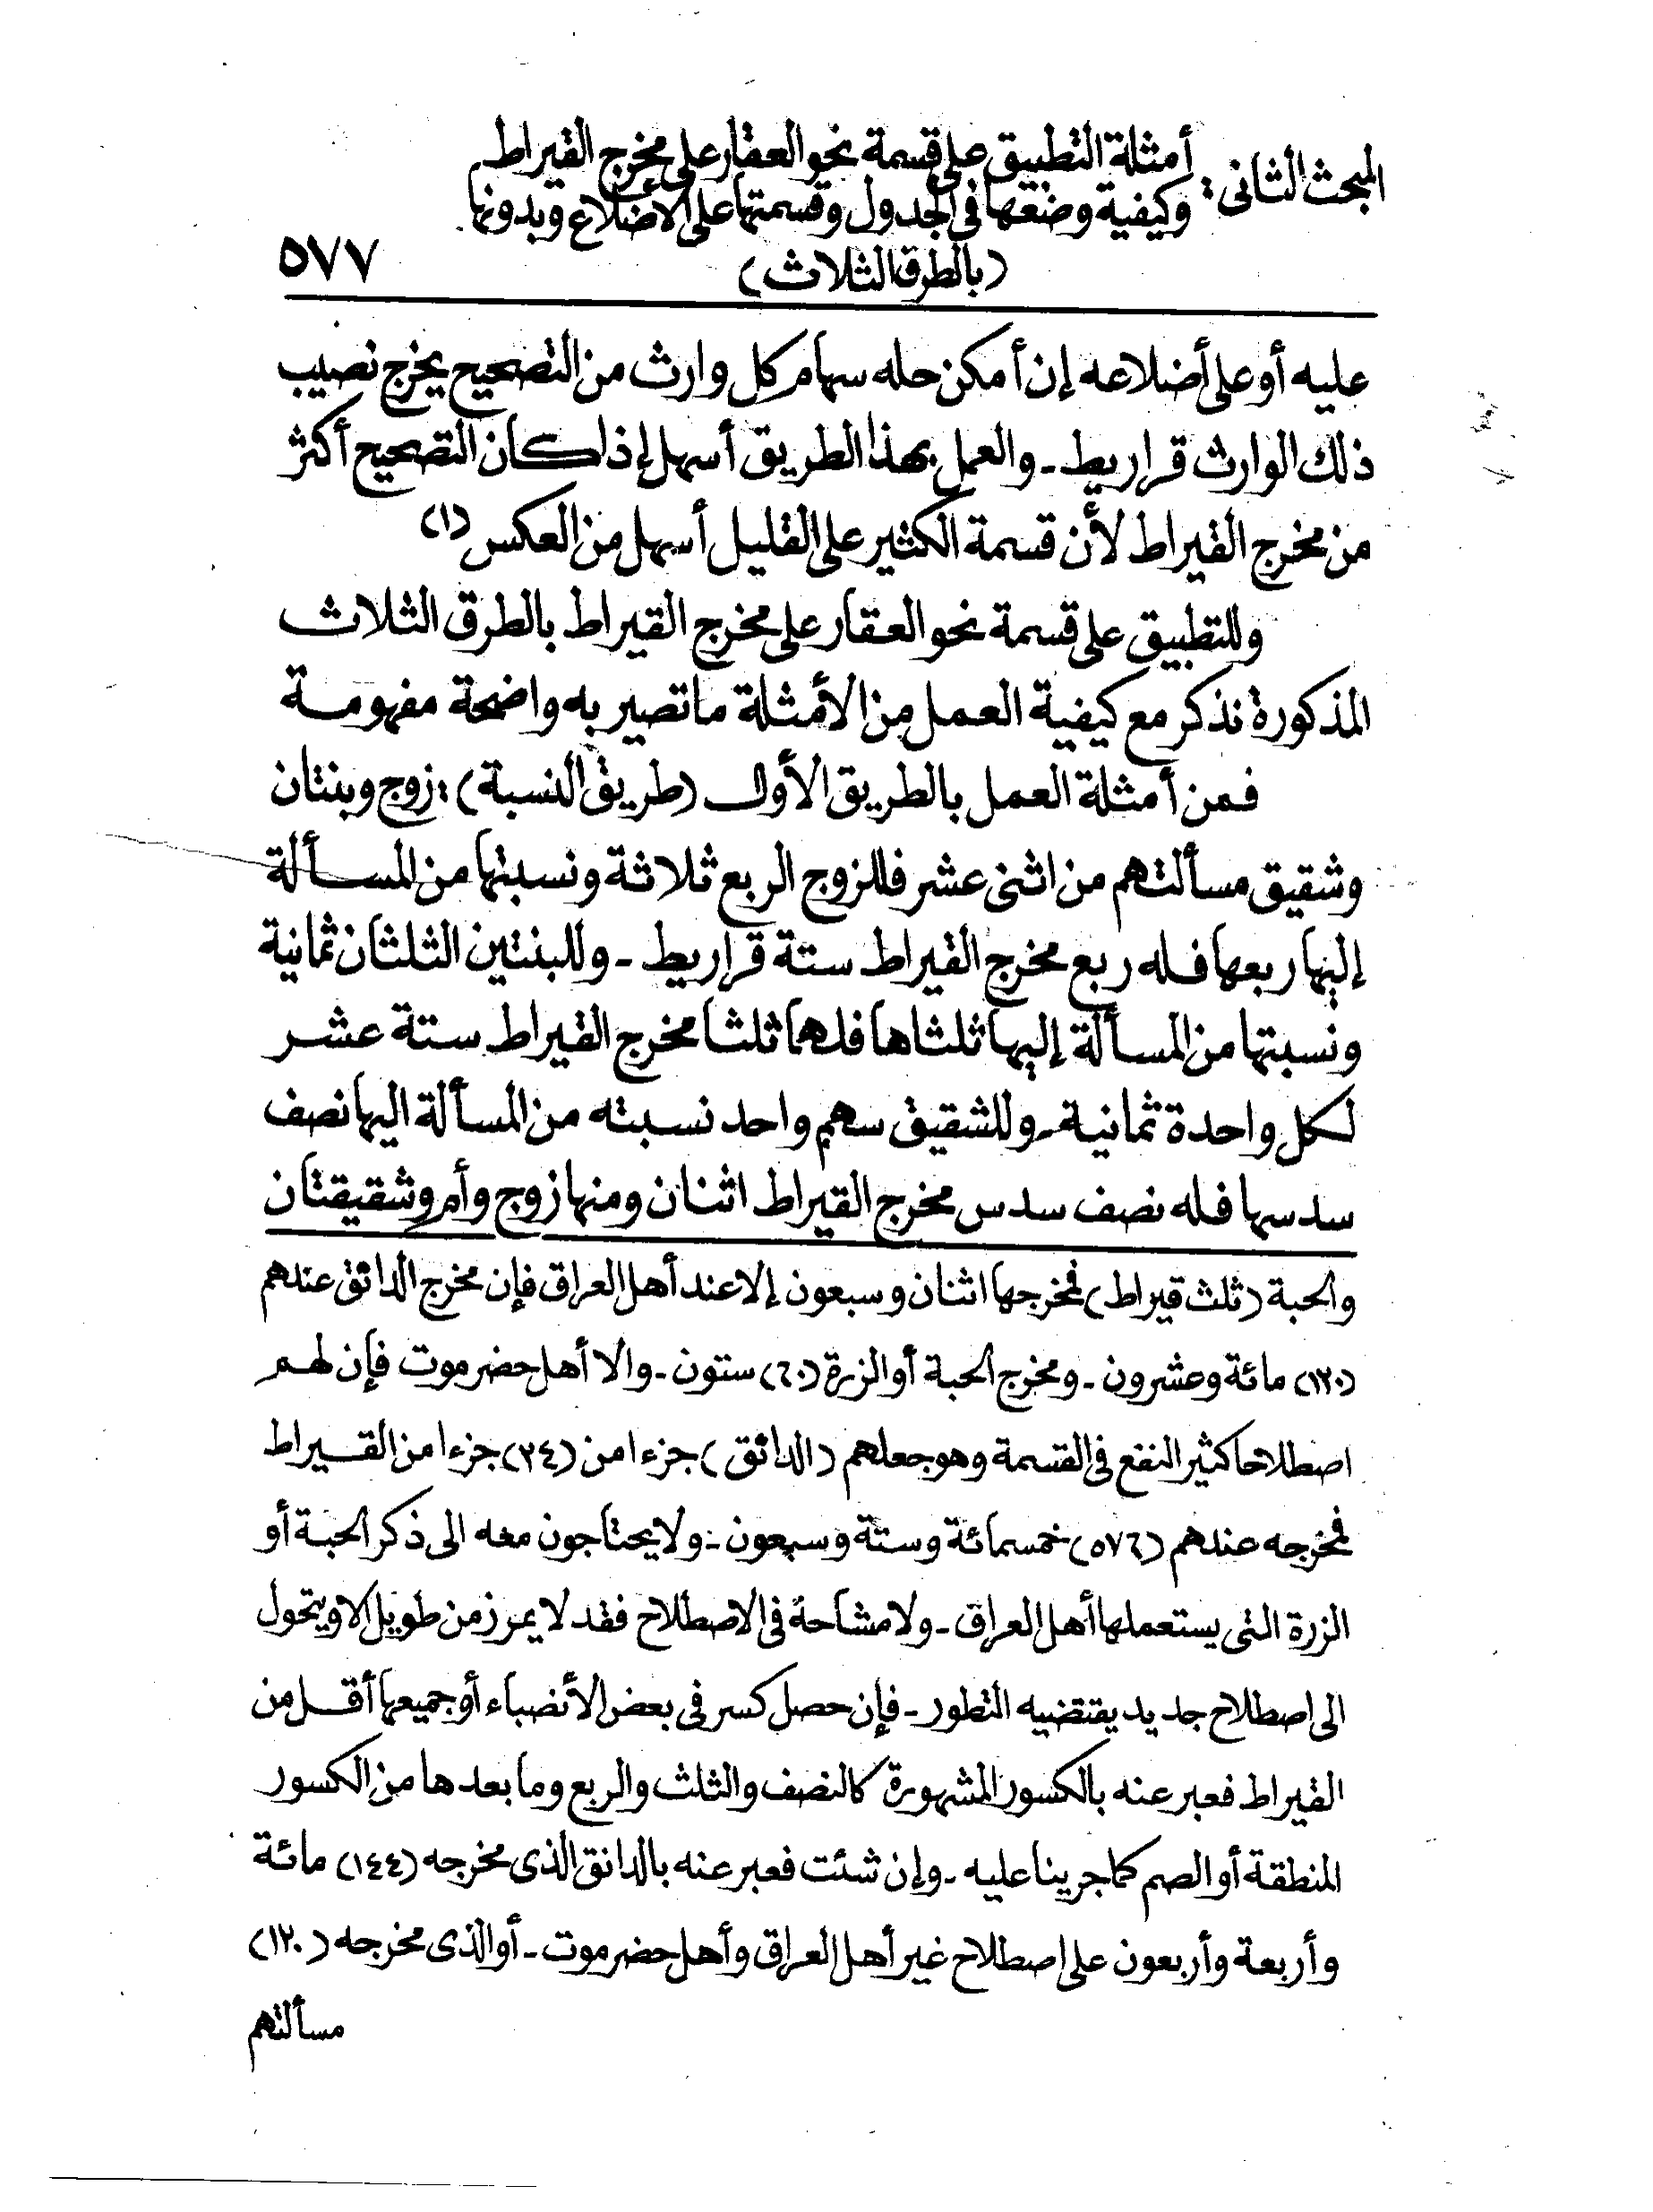 المبحث الثانى : أمثلة التطبيق على قسمة نحو العقار على مخرج القيراط
وكيفية وضعها فى الجدول وقسمتها على الأضلاع وبدونها
(بالطرق الثلاث)
٥٧٧
عليه أو على أضلاعه إن أمكن حله سهام كل وارث من التصحيح يخرج نصيب
ذلك الوارث قراريط ـ والعمل بهذا الطريق أسهل إذا كان التصحيح أكثر
من مخرج القيراط لأن قسمة الكثير على القليل أسهل من العكس (١)
وللتطبيق على قسمة نحو العقار على مخرج القيراط بالطرق الثلاث
المذكورة نذكر مع كيفية العمل من الأمثلة ما تصير به واضحة مفهومة
فمن أمثلة العمل بالطريق الأول (طريق النسبة) : زوج وبنتان
وشقيق مسألتهم من اثنى عشر فللزوج الربع ثلاثة ونسبتها من المسألة
إليها ربعها فله ربع مخرج القيراط ستة قراريط ـ وللبنتين الثلثان ثمانية
ونسبتها من المسألة إليها ثلثاها فلهما ثلثا مخرج القيراط ستة عشر
لكل واحدة ثمانية ـ وللشقيق سهم واحد نسبته من المسألة اليها نصف
سدسها فله نصف سدس مخرج القيراط اثنان ومنها زوج وأم وشقيقتان
والحبة (ثلث قيراط) فمخرجها اثنان وسبعون إلا عند أهل العراق فإن مخرج الدائق عندهم
(١٢٠) مائة وعشرون ـ ومخرج الحبة أو الزرة (٦٠) ستون ـ والا أهل حضرموت فإن لهم
اصطلاحا كثير النفع فى القسمة وهو جعلهم (الدائق) جزءا من (٢٤) جزءا من القيراط
فمخرجه عندهم (٥٧٦) خمسمائة وستة وسبعون ـ ولا يحتاجون معه الى ذكر الحبة أو
الزرة التى يستعملها أهل العراق ـ ولا مشاحة فى الاصطلاح فقد لا يمر زمن طويل الا ويتحول
الى اصطلاح جديد يقتضيه التطور ـ فإن حصل كسر فى بعض الأنصباء أو جميعها أقل من
القيراط فعبر عنه بالكسور المشهورة كالنصف والثلث والربع وما بعدها من الكسور
المنطقة أو الصم كما جرينا عليه ـ وإن شئت فعبر عنه بالدانق الذى مخرجه (١٤٤) مائة
وأربعة وأربعون على اصطلاح غير أهل العراق وأهل حضرموت ـ أو الذى مخرجه (١٢٠)
مسألتهم